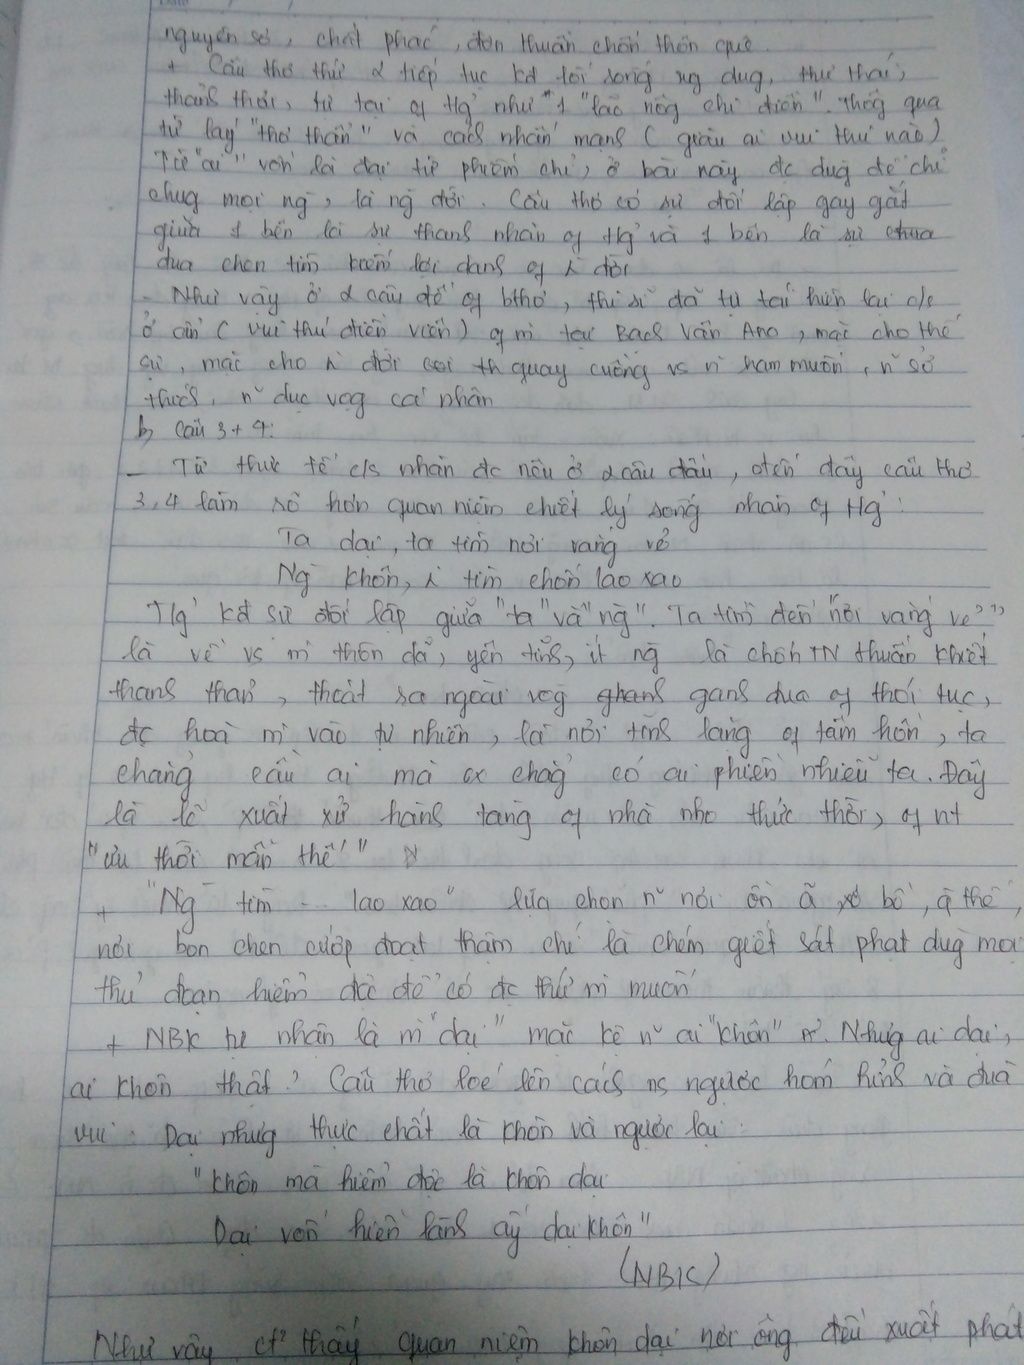 nguyên sơ, chất phác, đơn thuần chốn thôn quê.
+ Câu thơ thứ 2 tiếp tục kđ lối sống ung dug, thư thái,
thảnh thơi, tự tại of tgỉ như 1 "lão nông chi điền". Thôg qua
từ láy "thơ thẩn" và cách nhấn mạnh (giầu ai vui thú nào)
Từ "ai" vốn là đại từ phiếm chỉ, ở bài này đc dug để chỉ
chug mọi ng, là ng đời. Câu thơ có sự đối lập gay gắt
giữa 1 bên là sự thanh nhàn of tgỉ và 1 bên là sự chua
đua chen tìm kiếm lợi danh of λ đời
- Như vậy ở 2 câu đề of bthơ, thi sĩ đã tự tái hiện lại c/s
ở ẩn (vui thú điền viên) of m tại Bạch Vân Am, mặc cho thế
sự, mặc cho λ đời quay cuồng vs ham muốn, sở
thích, dục vọg cá nhân
b, Câu 3 + 4:
- Từ thực tế c/s nhàn đc nêu ở 2 câu đầu, đến đây câu thơ
3, 4 làm rõ hơn quan niệm triết lý sống nhàn of tgỉ:
Ta dại, ta tìm nơi vắng vẻ
Ng khôn, λ tìm chốn lao xao
Tgỉ kđ sự đối lập giữa "ta" và "ng". Ta tìm đến "nơi vắng vẻ"
là về vs m thôn dã, yên tĩnh, ít ng là chốn TN thuần khiết
thanh thản, thoát ra ngoài vòg ghanh ganh đua of thói tục,
đc hoà m vào tự nhiên, là nơi tĩnh lặng of tâm hồn, ta
chẳng cầu ai mà cx chẳg có ai phiền nhiễu ta. Đây
là lẽ xuất xử hành tàng of nhà nho thức thời, of nt
"ưu thời mẫn thế"
+ "Ng tìm -- lao xao" lựa chọn nơi ồn ã, xô bồ, thế,
nơi bon chen cướp đoạt thậm chí là chém giết sát phạt dug mọi
thủ đoạn hiểm độc để có đc thứ m muốn
+ NBK tự nhận là m "dại" mặc kệ ai "khôn". Nhưg ai dại,
ai khôn thật? Câu thơ loé lên cách ns ngược hóm hỉnh và đùa
vui: Dại nhưg thực chất là khôn và ngược lại:
"Khôn mà hiểm độc là khôn dại
Dại vốn hiền lành ấy dại khôn"
(NBK)
Như vậy thấy quan niệm khôn dại nơi ông đều xuất phát